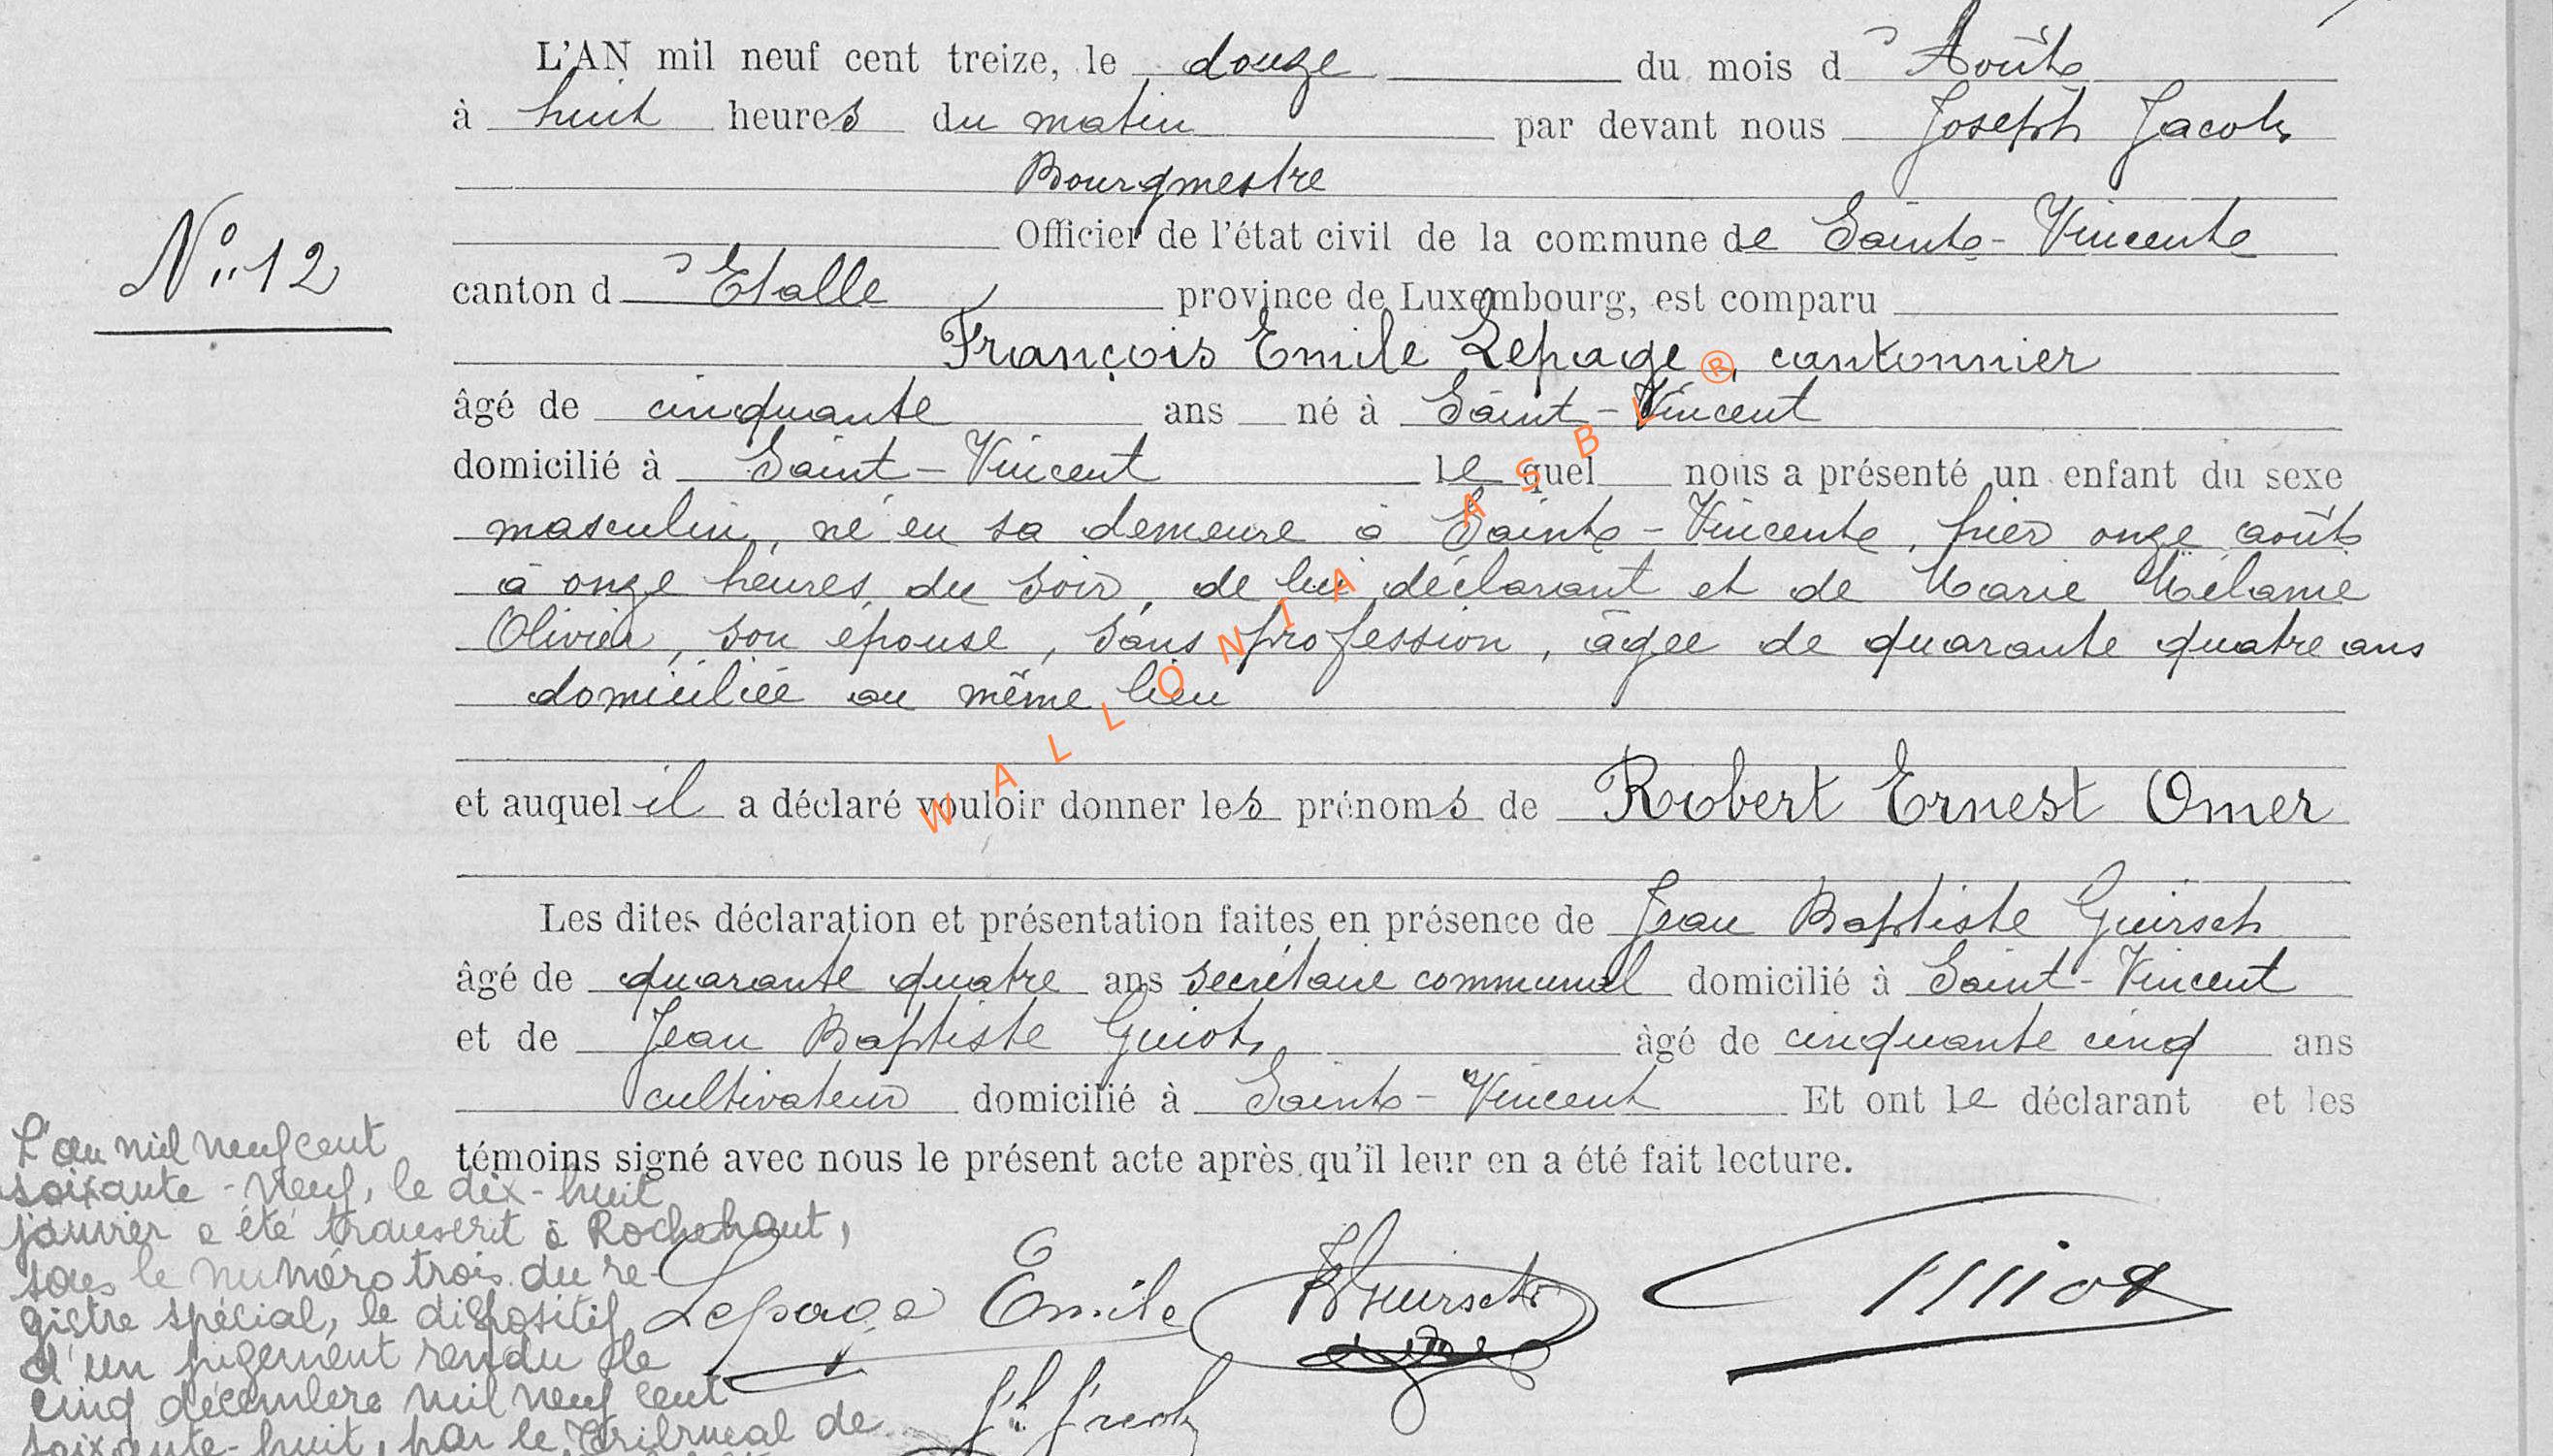 L'AN mil neuf cent treize, le douze du mois d'Août
à huit heures du matin par devant nous Joseph Jacob
Bourgmestre
Officier de l'état civil de la commune de Saint-Vincent
N° 12
canton d'Etalle province de Luxembourg, est comparu
François Emile Lepage, cantonnier
âgé de cinquante ans né à Saint-Vincent
domicilié à Saint-Vincent lequel nous a présenté un enfant du sexe
masculin, né en sa demeure à Saint-Vincent, hier onze août
à onze heures du soir, de lui déclarant et de Marie Mélanie
Olivier, son épouse, sans profession, âgée de quarante quatre ans
domiciliée au même lieu
et auquel il a déclaré vouloir donner les prénoms de Robert Ernest Omer
Les dites déclaration et présentation faites en présence de Jean Baptiste Guirsch
âgé de quarante quatre ans secrétaire communal domicilié à Saint-Vincent
et de Jean Baptiste Guiot âgé de cinquante cinq ans
cultivateur domicilié à Saint-Vincent Et ont le déclarant et les
témoins signé avec nous le présent acte après qu'il leur en a été fait lecture.
Lepage Emile JBGuirsch Guiot
Jh Jacob
L'an mil neuf cent
soixante-neuf, le dix-huit
janvier a été transcrit à Rochehaut,
sous le numéro trois du re-
gistre spécial, le dispositif
d'un jugement rendu le
cinq décembre mil neuf cent
soixante-huit, par le Tribunal de
WALLONIA ASBL ®